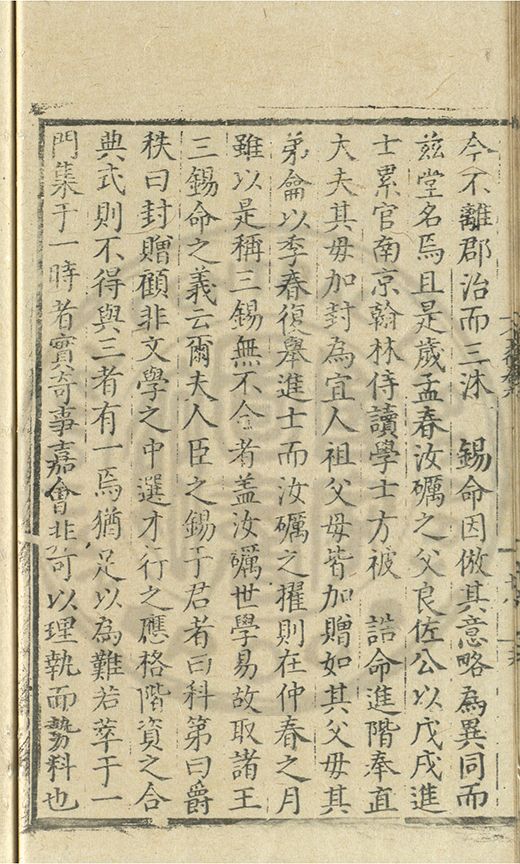 今不離郡治而三沐　錫命因倣其意略為異同而
茲堂名焉且是歲孟春汝礪之父良佐公以戊戌進
士累官南京翰林侍讀學士方被　誥命進階奉直
大夫其毋加封為宜人祖父毋皆加贈如其父毋其
弟龠以季春復舉進士而汝礪之擢則在仲春之月
雖以是稱三錫無不合者盖汝礪世學易故取諸王
三錫命之義云爾夫人臣之錫于君者曰科第曰爵
秩曰封贈顧非文學之中選才行之應格階資之合
典式則不得與三者有一焉猶足以為難若萃于一
門集于一時者實奇事嘉會非可以理執而勢料也